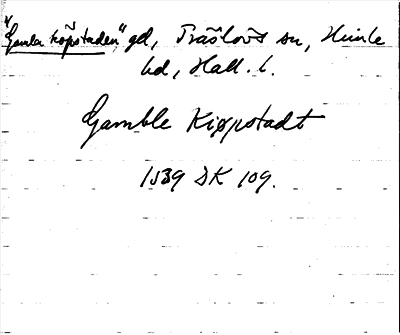 "Gamla köpstaden," gd, Träslövs sn, Himle
hd, Hall. l.
Gamble Kiøpstadt
1539 DK 109.